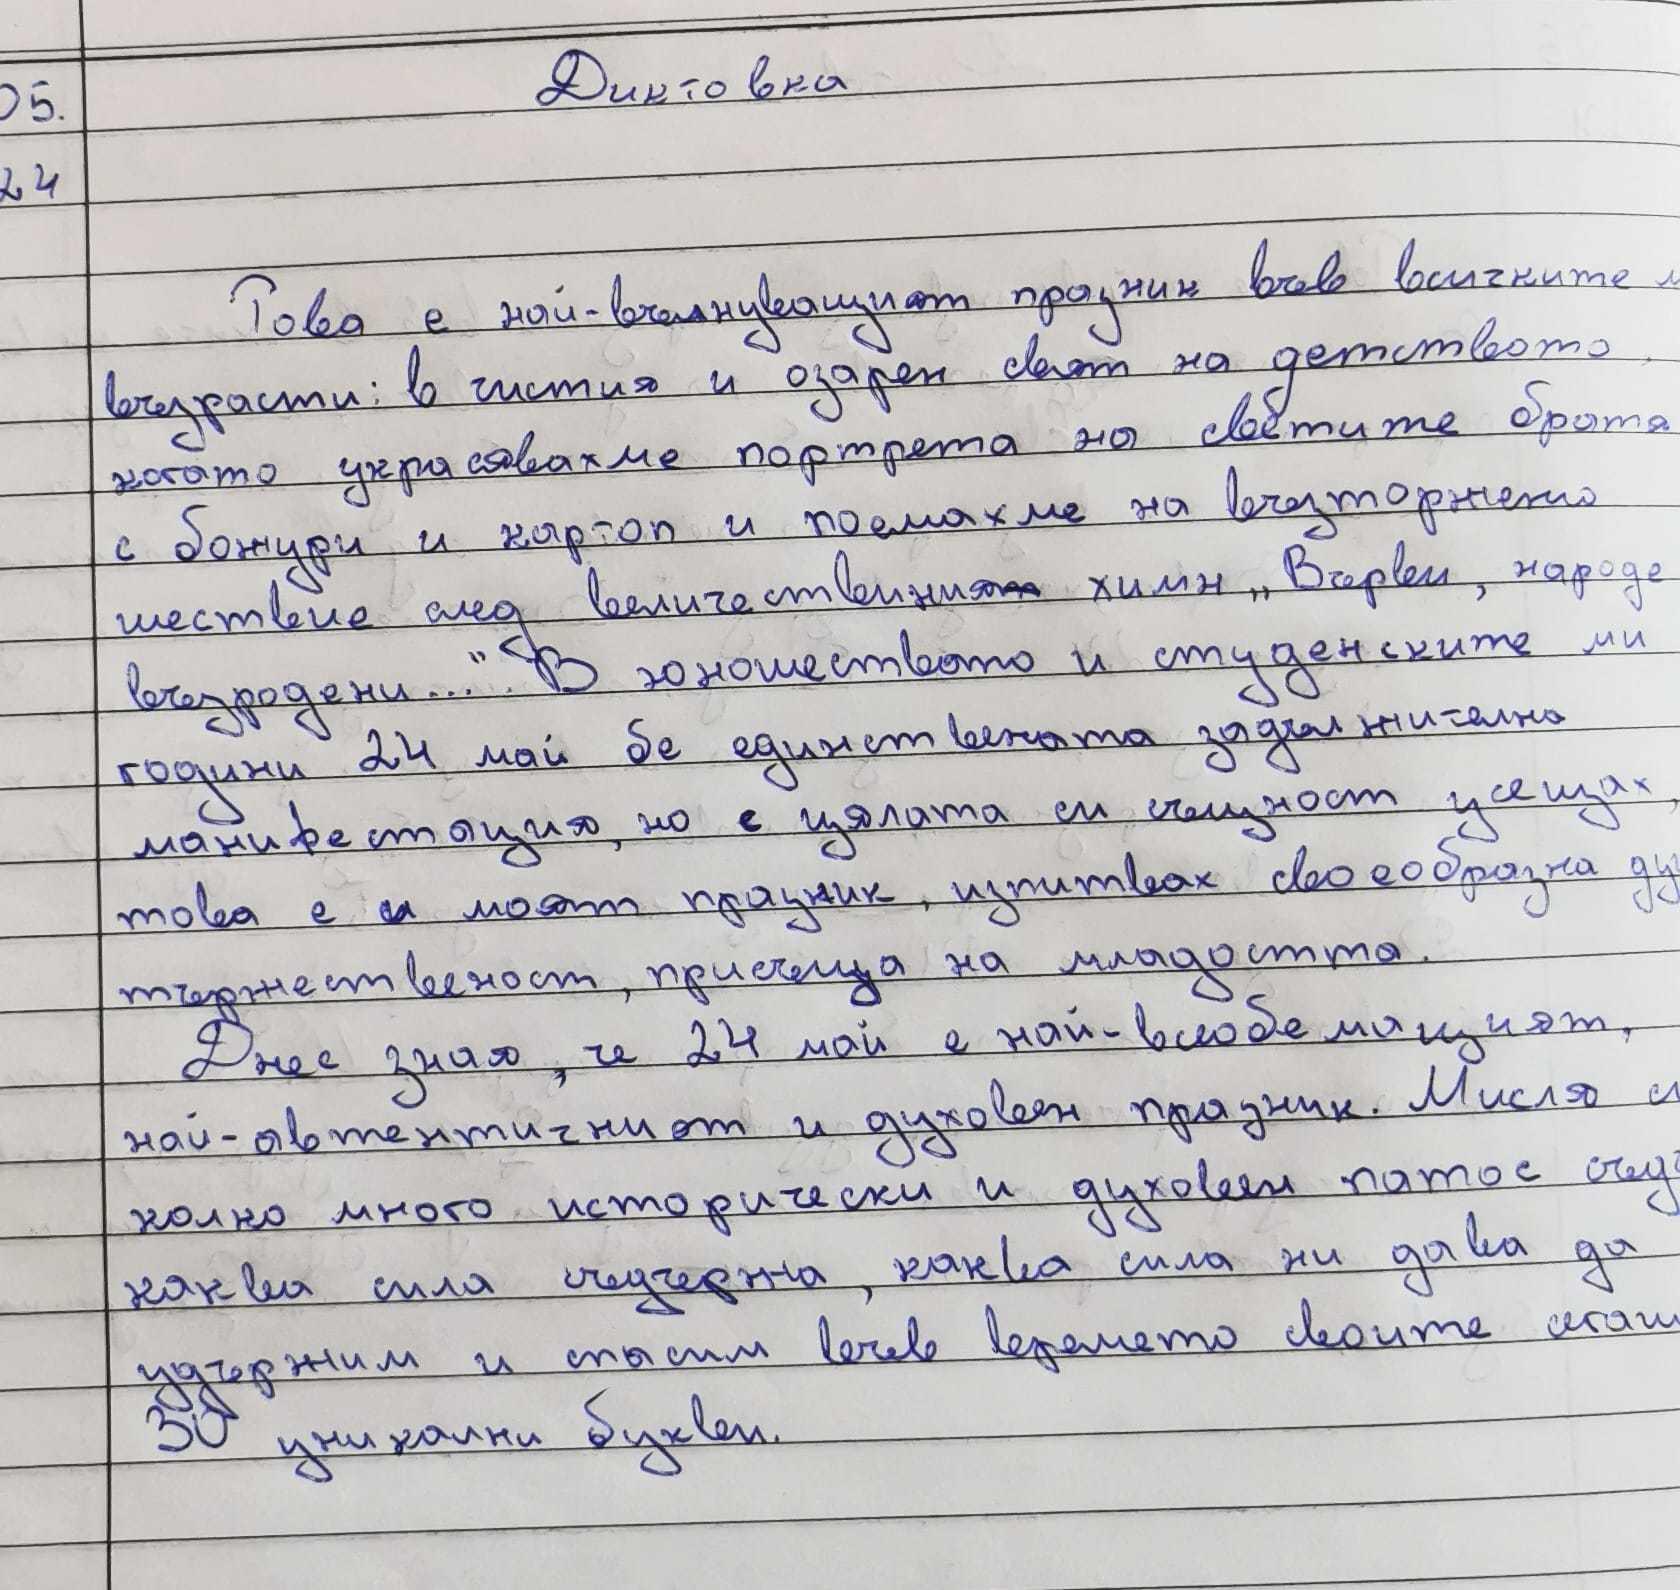 Диктовка
05.
24
Това е най-вълнуващият празник във всичките м
възрасти: в чистия и озарен свят на детството,
когато украсявахме портрета на светите братя
с божури и картоп и поемахме на възторжено
шествие след величествения химн „Върви, народе
възродени...“. В юношеството и студенските ми
години 24 май бе единствената задължително
манифестация, но с цялата си същност усещах,
това е и моят празник, изпитвах своеобразна ду
тържественост, присъща на младостта.
Днес зная, че 24 май е най-всеобемащият,
най-автентичният и духовен празник. Мисля си
колко много исторически и духовен патос съд
каква сила съдържа, каква сила ни дава да
удържим и спасим във времето своите сегаш
30 уникални букви.